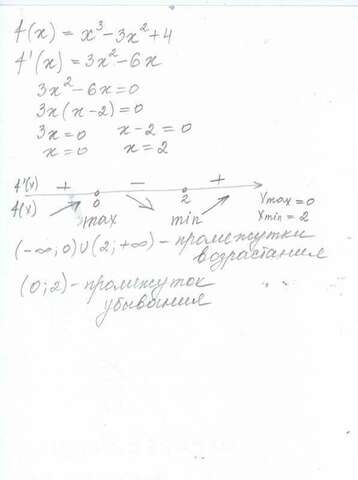 f(x) = x³-3x²+4
f'(x) = 3x²-6x
3x²-6x=0
3x(x-2)=0
3x=0 x-2=0
x=0 x=2
f'(x) + - +
0 2
f(x) max min
xmax = 0
xmin = 2
(-∞;0)∪(2;+∞)-промежутки
возрастания
(0;2)-промежуток
убывания